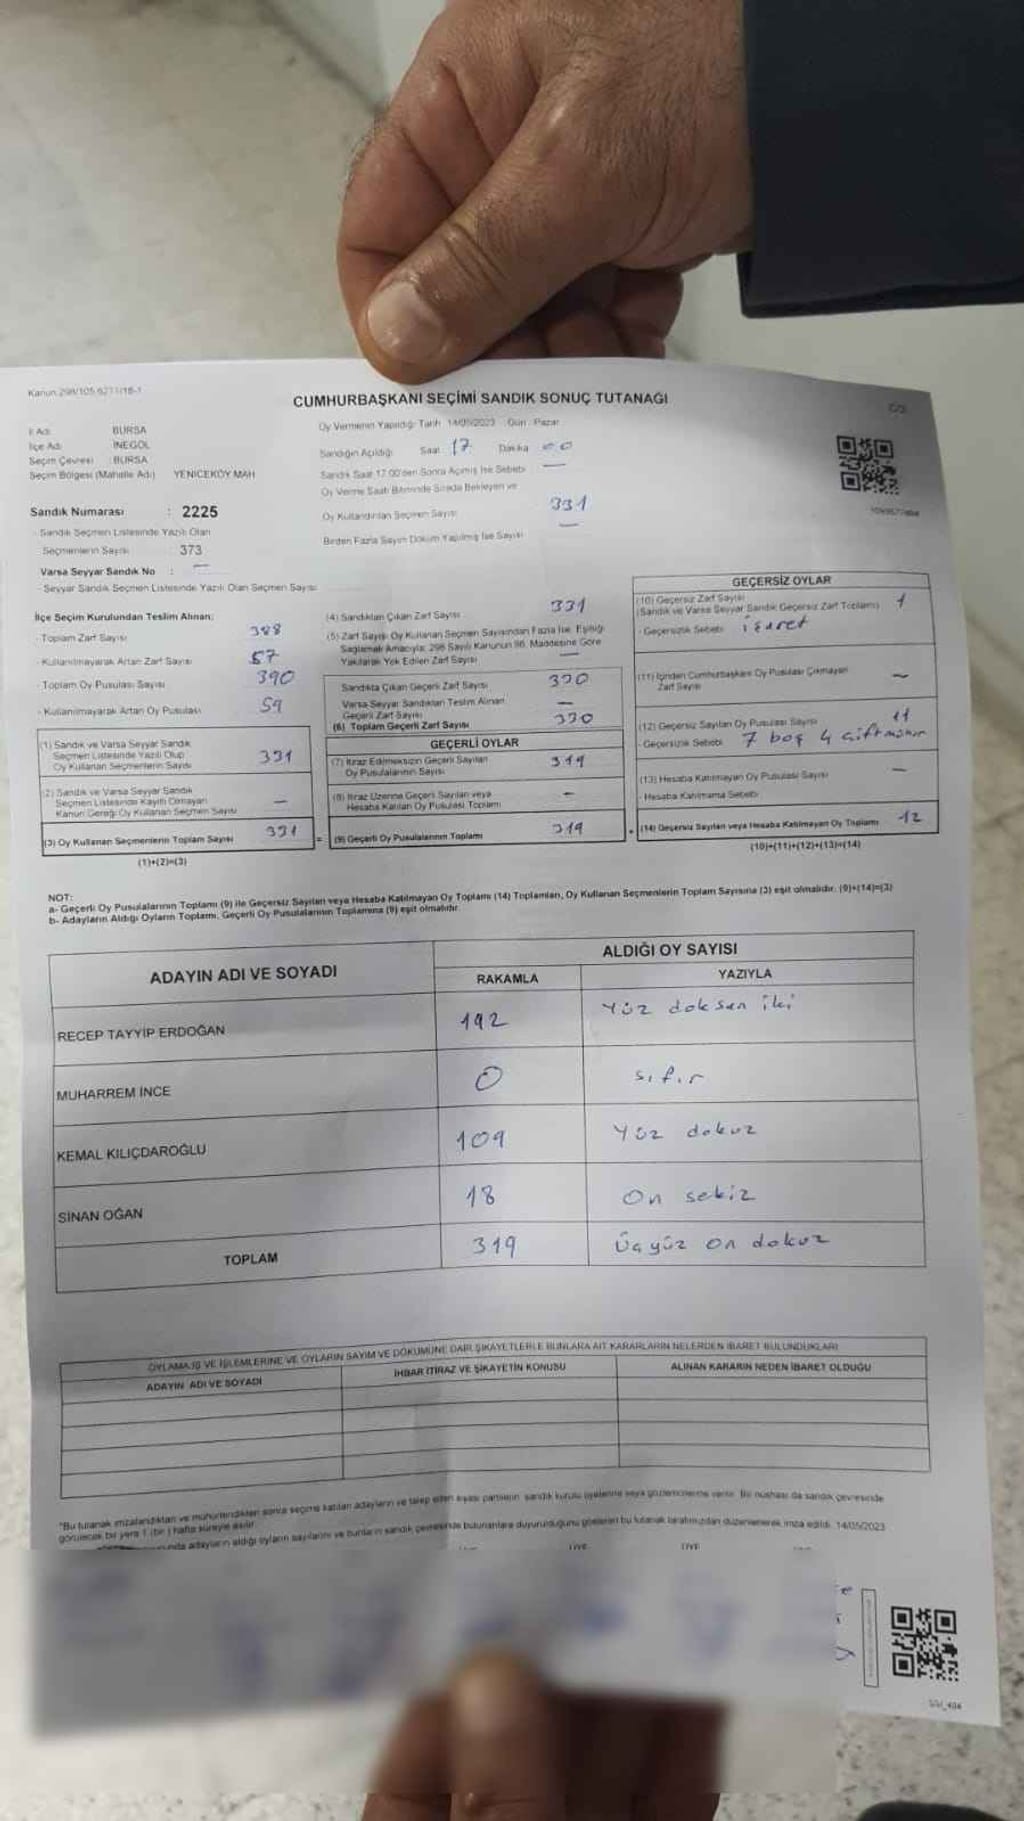 Kanun 298/105 6271/18-1
CUMHURBAŞKANI SEÇİMİ SANDIK SONUÇ TUTANAĞI
İl Adı BURSA
İlçe Adı İNEGÖL
Seçim Çevresi : BURSA
Seçim Bölgesi (Mahalle Adı) YENİCEKÖY MAH
Sandık Numarası : 2225
- Sandık Seçmen Listesinde Yazılı Olan
Seçmenlerin Sayısı : 373
Varsa Seyyar Sandık No : —
- Seyyar Sandık Seçmen Listesinde Yazılı Olan Seçmen Sayısı
Oy Vermenin Yapıldığı Tarih 14/05/2023 Gün : Pazar
Sandığın Açıldığı Saat 17 Dakika 00
Sandık Saat 17.00'den Sonra Açılmış İse Sebebi —
Oy Verme Saati Bitiminde Sırada Bekleyen ve
Oy Kullandırılan Seçmen Sayısı 331
Birden Fazla Sayım Döküm Yapılmış İse Sayısı —
İlçe Seçim Kurulundan Teslim Alınan:
- Toplam Zarf Sayısı 388
- Kullanılmayarak Artan Zarf Sayısı 57
- Toplam Oy Pusulası Sayısı 390
- Kullanılmayarak Artan Oy Pusulası 59
(1) Sandık ve Varsa Seyyar Sandık
Seçmen Listesinde Yazılı Olup
Oy Kullanan Seçmenlerin Sayısı 331
(2) Sandık ve Varsa Seyyar Sandık
Seçmen Listesinde Kayıtlı Olmayan
Kanun Gereği Oy Kullanan Seçmen Sayısı —
(3) Oy Kullanan Seçmenlerin Toplam Sayısı 331 =
(1)+(2)=(3)
(4) Sandıktan Çıkan Zarf Sayısı 331
(5) Zarf Sayısı Oy Kullanan Seçmen Sayısından Fazla İse, Eşitliği
Sağlamak Amacıyla; 298 Sayılı Kanunun 98. Maddesine Göre
Yakılarak Yok Edilen Zarf Sayısı —
Sandıkta Çıkan Geçerli Zarf Sayısı 330
Varsa Seyyar Sandıktan Teslim Alınan
Geçerli Zarf Sayısı —
(6) Toplam Geçerli Zarf Sayısı 330
GEÇERLİ OYLAR
(7) İtiraz Edilmeksizin Geçerli Sayılan
Oy Pusulalarının Sayısı 319
(8) İtiraz Üzerine Geçerli Sayılan veya
Hesaba Katılan Oy Pusulası Toplamı —
(9) Geçerli Oy Pusulalarının Toplamı 319 +
GEÇERSİZ OYLAR
(10) Geçersiz Zarf Sayısı
(Sandık ve Varsa Seyyar Sandık Geçersiz Zarf Toplamı) 1
- Geçersizlik Sebebi işaret
(11) İçinden Cumhurbaşkanı Oy Pusulası Çıkmayan
Zarf Sayısı —
(12) Geçersiz Sayılan Oy Pusulası Sayısı 11
- Geçersizlik Sebebi 7 boş 4 çift mühür
(13) Hesaba Katılmayan Oy Pusulası Sayısı —
- Hesaba Katılmama Sebebi
(14) Geçersiz Sayılan veya Hesaba Katılmayan Oy Toplamı 12
(10)+(11)+(12)+(13)=(14)
NOT:
a- Geçerli Oy Pusulalarının Toplamı (9) ile Geçersiz Sayılan veya Hesaba Katılmayan Oy Toplamı (14) Toplamları, Oy Kullanan Seçmenlerin Toplam Sayısına (3) eşit olmalıdır. (9)+(14)=(3)
b- Adayların Aldığı Oyların Toplamı, Geçerli Oy Pusulalarının Toplamına (9) eşit olmalıdır.
ADAYIN ADI VE SOYADI
ALDIĞI OY SAYISI
RAKAMLA YAZIYLA
RECEP TAYYİP ERDOĞAN 192 Yüz doksan iki
MUHARREM İNCE 0 sıfır
KEMAL KILIÇDAROĞLU 109 Yüz dokuz
SİNAN OĞAN 18 On sekiz
TOPLAM 319 Üçyüz on dokuz
OYLAMA İŞ VE İŞLEMLERİNE VE OYLARIN SAYIM VE DÖKÜMÜNE DAİR ŞİKAYETLERLE BUNLARA AİT KARARLARIN NELERDEN İBARET BULUNDUKLARI
ADAYIN ADI VE SOYADI İHBAR İTİRAZ VE ŞİKAYETİN KONUSU ALINAN KARARIN NEDEN İBARET OLDUĞU
"Bu tutanak imzalandıktan ve mühürlendikten sonra seçime katılan adayların ve talep eden siyasi partilerin sandık kurulu üyelerine veya gözlemcilerine verilir. Bir nüshası da sandık çevresinde
görülecek bir yere 1 (bir) hafta süreyle asılır.
adayların aldığı oyların sayılarını ve bunların sandık çevresinde bulunanlara duyurulduğunu gösteren bu tutanak tarafımızdan düzenlenerek imza edildi. 14/05/2023
ÜYE ÜYE